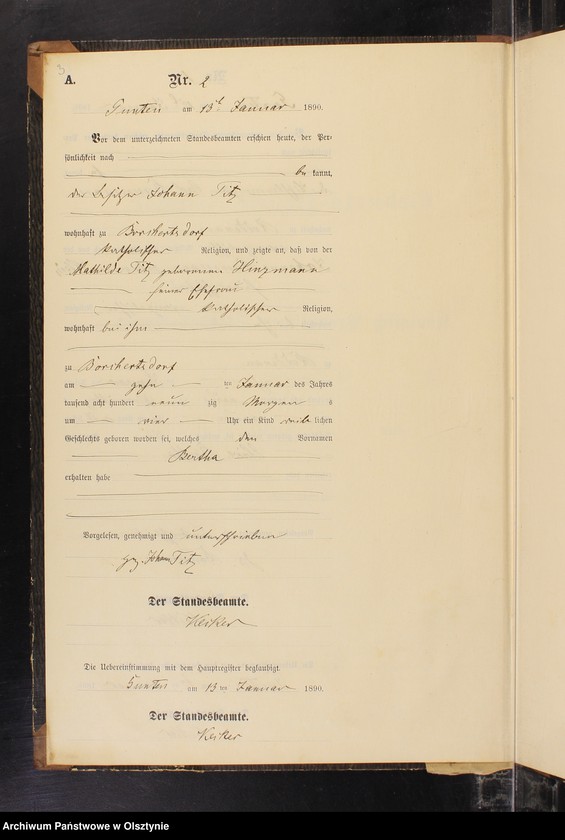 3
A.
Nr. 2
Sunten am 13t Januar 1890.
Vor dem unterzeichneten Standesbeamten erschien heute, der Per-
sönlichkeit nach
be kannt,
der Besitzer Johann Titz
wohnhaft zu Borchertsdorf
katholischer Religion, und zeigte an, daß von der
Mathilde Titz geborenen Hinzmann
seiner Ehefrau
katholischer Religion,
wohnhaft bei ihm
zu Borchertsdorf
am zehn ten Januar des Jahres
tausend acht hundert neun zig Morgen s
um vier Uhr ein Kind weib lichen
Geschlechts geboren worden sei, welches den Vornamen
Bertha
erhalten habe
Vorgelesen, genehmigt und unterschrieben
gez. Johann Titz
Der Standesbeamte.
Keiker
Die Uebereinstimmung mit dem Hauptregister beglaubigt.
Sunten am 13 ten Januar 1890.
Der Standesbeamte.
Keiker
Archiwum Państwowe w Olsztynie